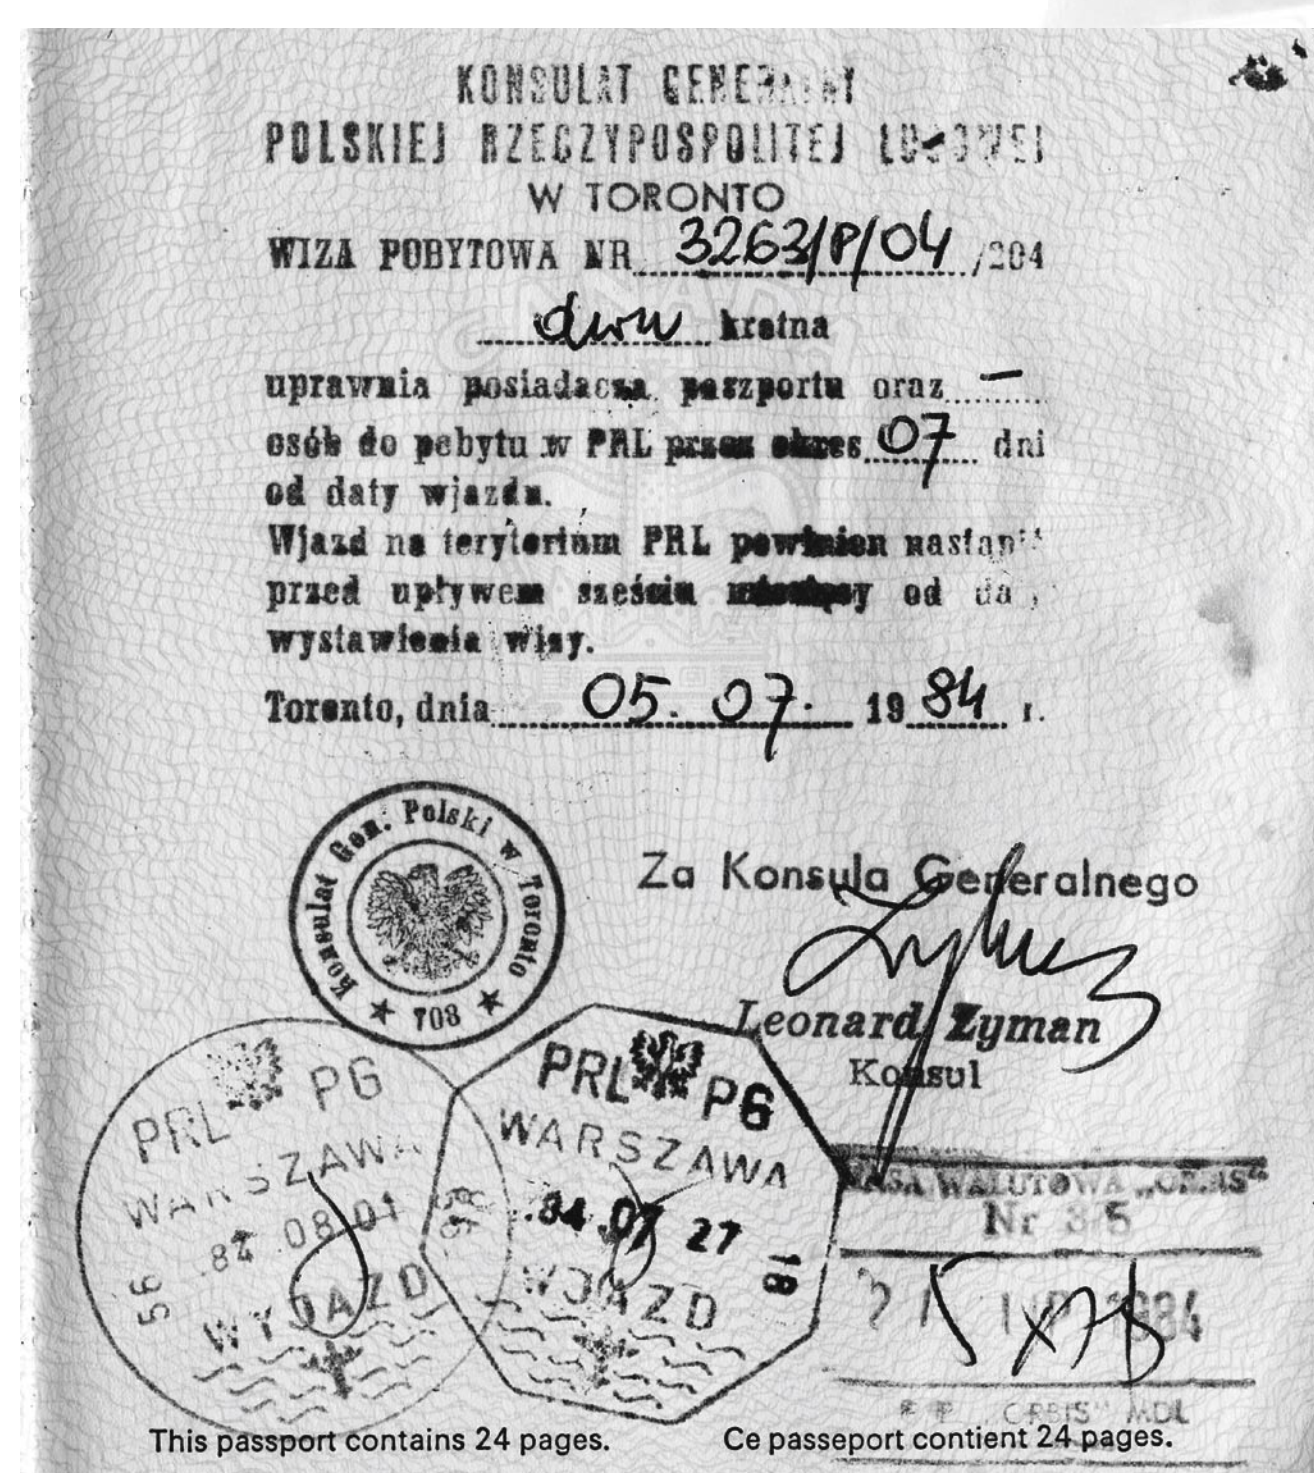 KONSULAT GENERALNY
POLSKIEJ RZECZYPOSPOLITEJ LUDOWEJ
W TORONTO
WIZA POBYTOWA NR 3263/P/04 /204
dwu kratna
uprawnia posiadacza paszportu oraz —
osób do pobytu w PRL przez okres 07 dni
od daty wjazdu.
Wjazd na terytorium PRL powinien nastąpić
przed upływem sześciu miesięcy od da
wystawienia wizy.
Toronto, dnia 05. 07. 19 84 r.
Konsulat Gen. Polski w Toronto
708
Za Konsula Generalnego
Leonard Zyman
Konsul
PRL PG
WARSZAWA
84 08 01
56
WYJAZD
PRL PG
WARSZAWA
84 07 27
18
WJAZD
KASA WALUTOWA „ORBIS"
Nr 35
1984
"ORBIS" MDL
This passport contains 24 pages.
Ce passeport contient 24 pages.